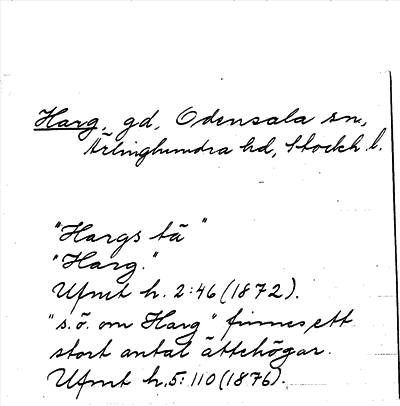 Harg, gd, Odensala sn,
Ärlinghundra hd, Stockh. l.
"Hargs tä"
"Harg."
Ufmt h. 2:46 (1872).
"s.ö. om Harg" finnes ett
stort antal ättehögar.
Ufmt h. 5:110 (1876).